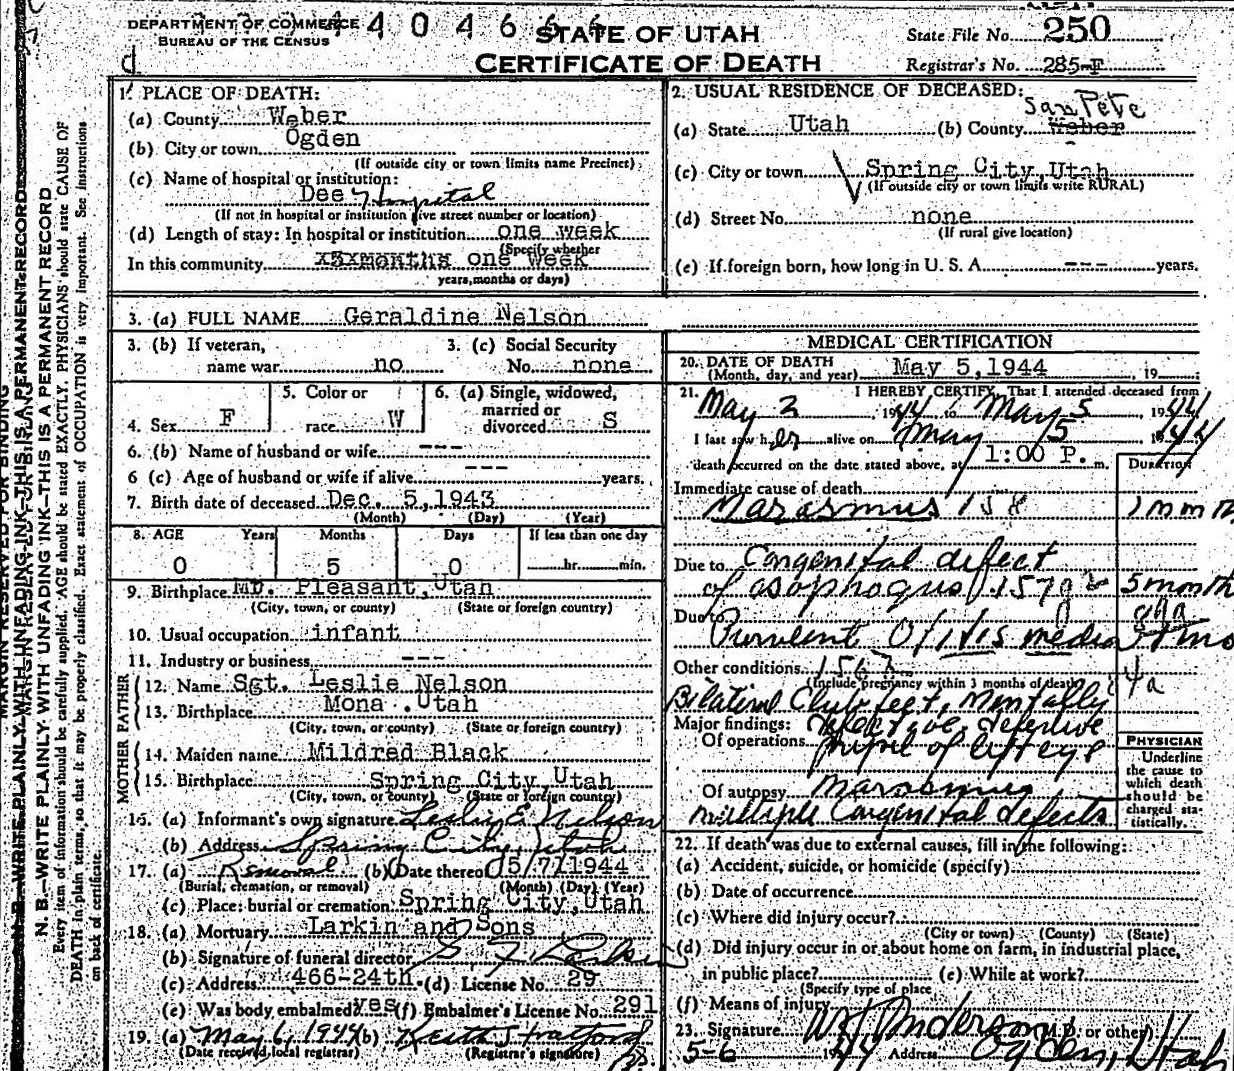 DEPARTMENT OF COMMERCE
BUREAU OF THE CENSUS
4404666
STATE OF UTAH
CERTIFICATE OF DEATH
State File No. 250
Registrar's No. 285-F
d
1. PLACE OF DEATH:
(a) County Weber
(b) City or town Ogden
(If outside city or town limits name Precinct)
(c) Name of hospital or institution:
Dee Hospital
(If not in hospital or institution give street number or location)
(d) Length of stay: In hospital or institution one week
(Specify whether
In this community x5xmonths one week
years, months or days)
2. USUAL RESIDENCE OF DECEASED:
San Pete
(a) State Utah (b) County Weber
(c) City or town Spring City, Utah
(If outside city or town limits write RURAL)
(d) Street No. none
(If rural give location)
(e) If foreign born, how long in U. S. A. --- years.
3. (a) FULL NAME Geraldine Nelson
3. (b) If veteran,
name war no
3. (c) Social Security
No. none
4. Sex F
5. Color or
race W
6. (a) Single, widowed,
married or
divorced S
6. (b) Name of husband or wife ---
6 (c) Age of husband or wife if alive --- years.
7. Birth date of deceased Dec. 5, 1943
(Month) (Day) (Year)
8. AGE Years Months Days If less than one day
0 5 0 hr. min.
9. Birthplace Mt. Pleasant, Utah
(City, town, or county) (State or foreign country)
10. Usual occupation infant
11. Industry or business ---
FATHER
12. Name Sgt. Leslie Nelson
13. Birthplace Mona .Utah
(City, town, or county) (State or foreign country)
MOTHER
14. Maiden name Mildred Black
15. Birthplace Spring City, Utah
(City, town, or county) (State or foreign country)
16. (a) Informant's own signature Leslie E Nelson
(b) Address Spring City, Utah
17. (a) Removal (b) Date thereof 5/7/1944
(Burial, cremation, or removal) (Month) (Day) (Year)
(c) Place: burial or cremation Spring City, Utah
18. (a) Mortuary Larkin and Sons
(b) Signature of funeral director Larkin
(c) Address 466-24th. (d) License No. 29
(e) Was body embalmed? yes (f) Embalmer's License No. 291
19. (a) May 6, 1944 (b) Keith Stratford
(Date received local registrar) (Registrar's signature)
MEDICAL CERTIFICATION
20. DATE OF DEATH
(Month, day, and year) May 5, 1944 , 19
21. I HEREBY CERTIFY, That I attended deceased from
May 2 1944 to May 5 1944
I last saw her alive on May 5 1944
death occurred on the date stated above, at 1:00 P. m.
DURATION
Immediate cause of death
Marasmus 158 1 month
Due to Congenital defect
of esophogus 157g 5 month
Due to
Purulent Otitis media
Other conditions
(Include pregnancy within 3 months of death)
Bilateral Club feet, mentally
defective defective
Major findings:
Of operations pupil of left eye
Of autopsy Marasmus
multiple congenital defects
PHYSICIAN
Underline
the cause to
which death
should be
charged sta-
tistically.
22. If death was due to external causes, fill in the following:
(a) Accident, suicide, or homicide (specify)
(b) Date of occurrence
(c) Where did injury occur?
(City or town) (County) (State)
(d) Did injury occur in or about home on farm, in industrial place,
in public place? (e) While at work?
(Specify type of place
(f) Means of injury
23. Signature Anderson (M.D. or other)
5-6 1944 Address Ogden, Utah
MARGIN RESERVED FOR BINDING
N. B.—WRITE PLAINLY WITH UNFADING INK—THIS IS A PERMANENT RECORD
N. B.—WRITE PLAINLY WITH UNFADING INK—THIS IS A PERMANENT RECORD
Every item of information should be carefully supplied. AGE should be stated EXACTLY. PHYSICIANS should state CAUSE OF
DEATH in plain terms, so that it may be properly classified. Exact statement of OCCUPATION is very important. See instructions
on back of certificate.